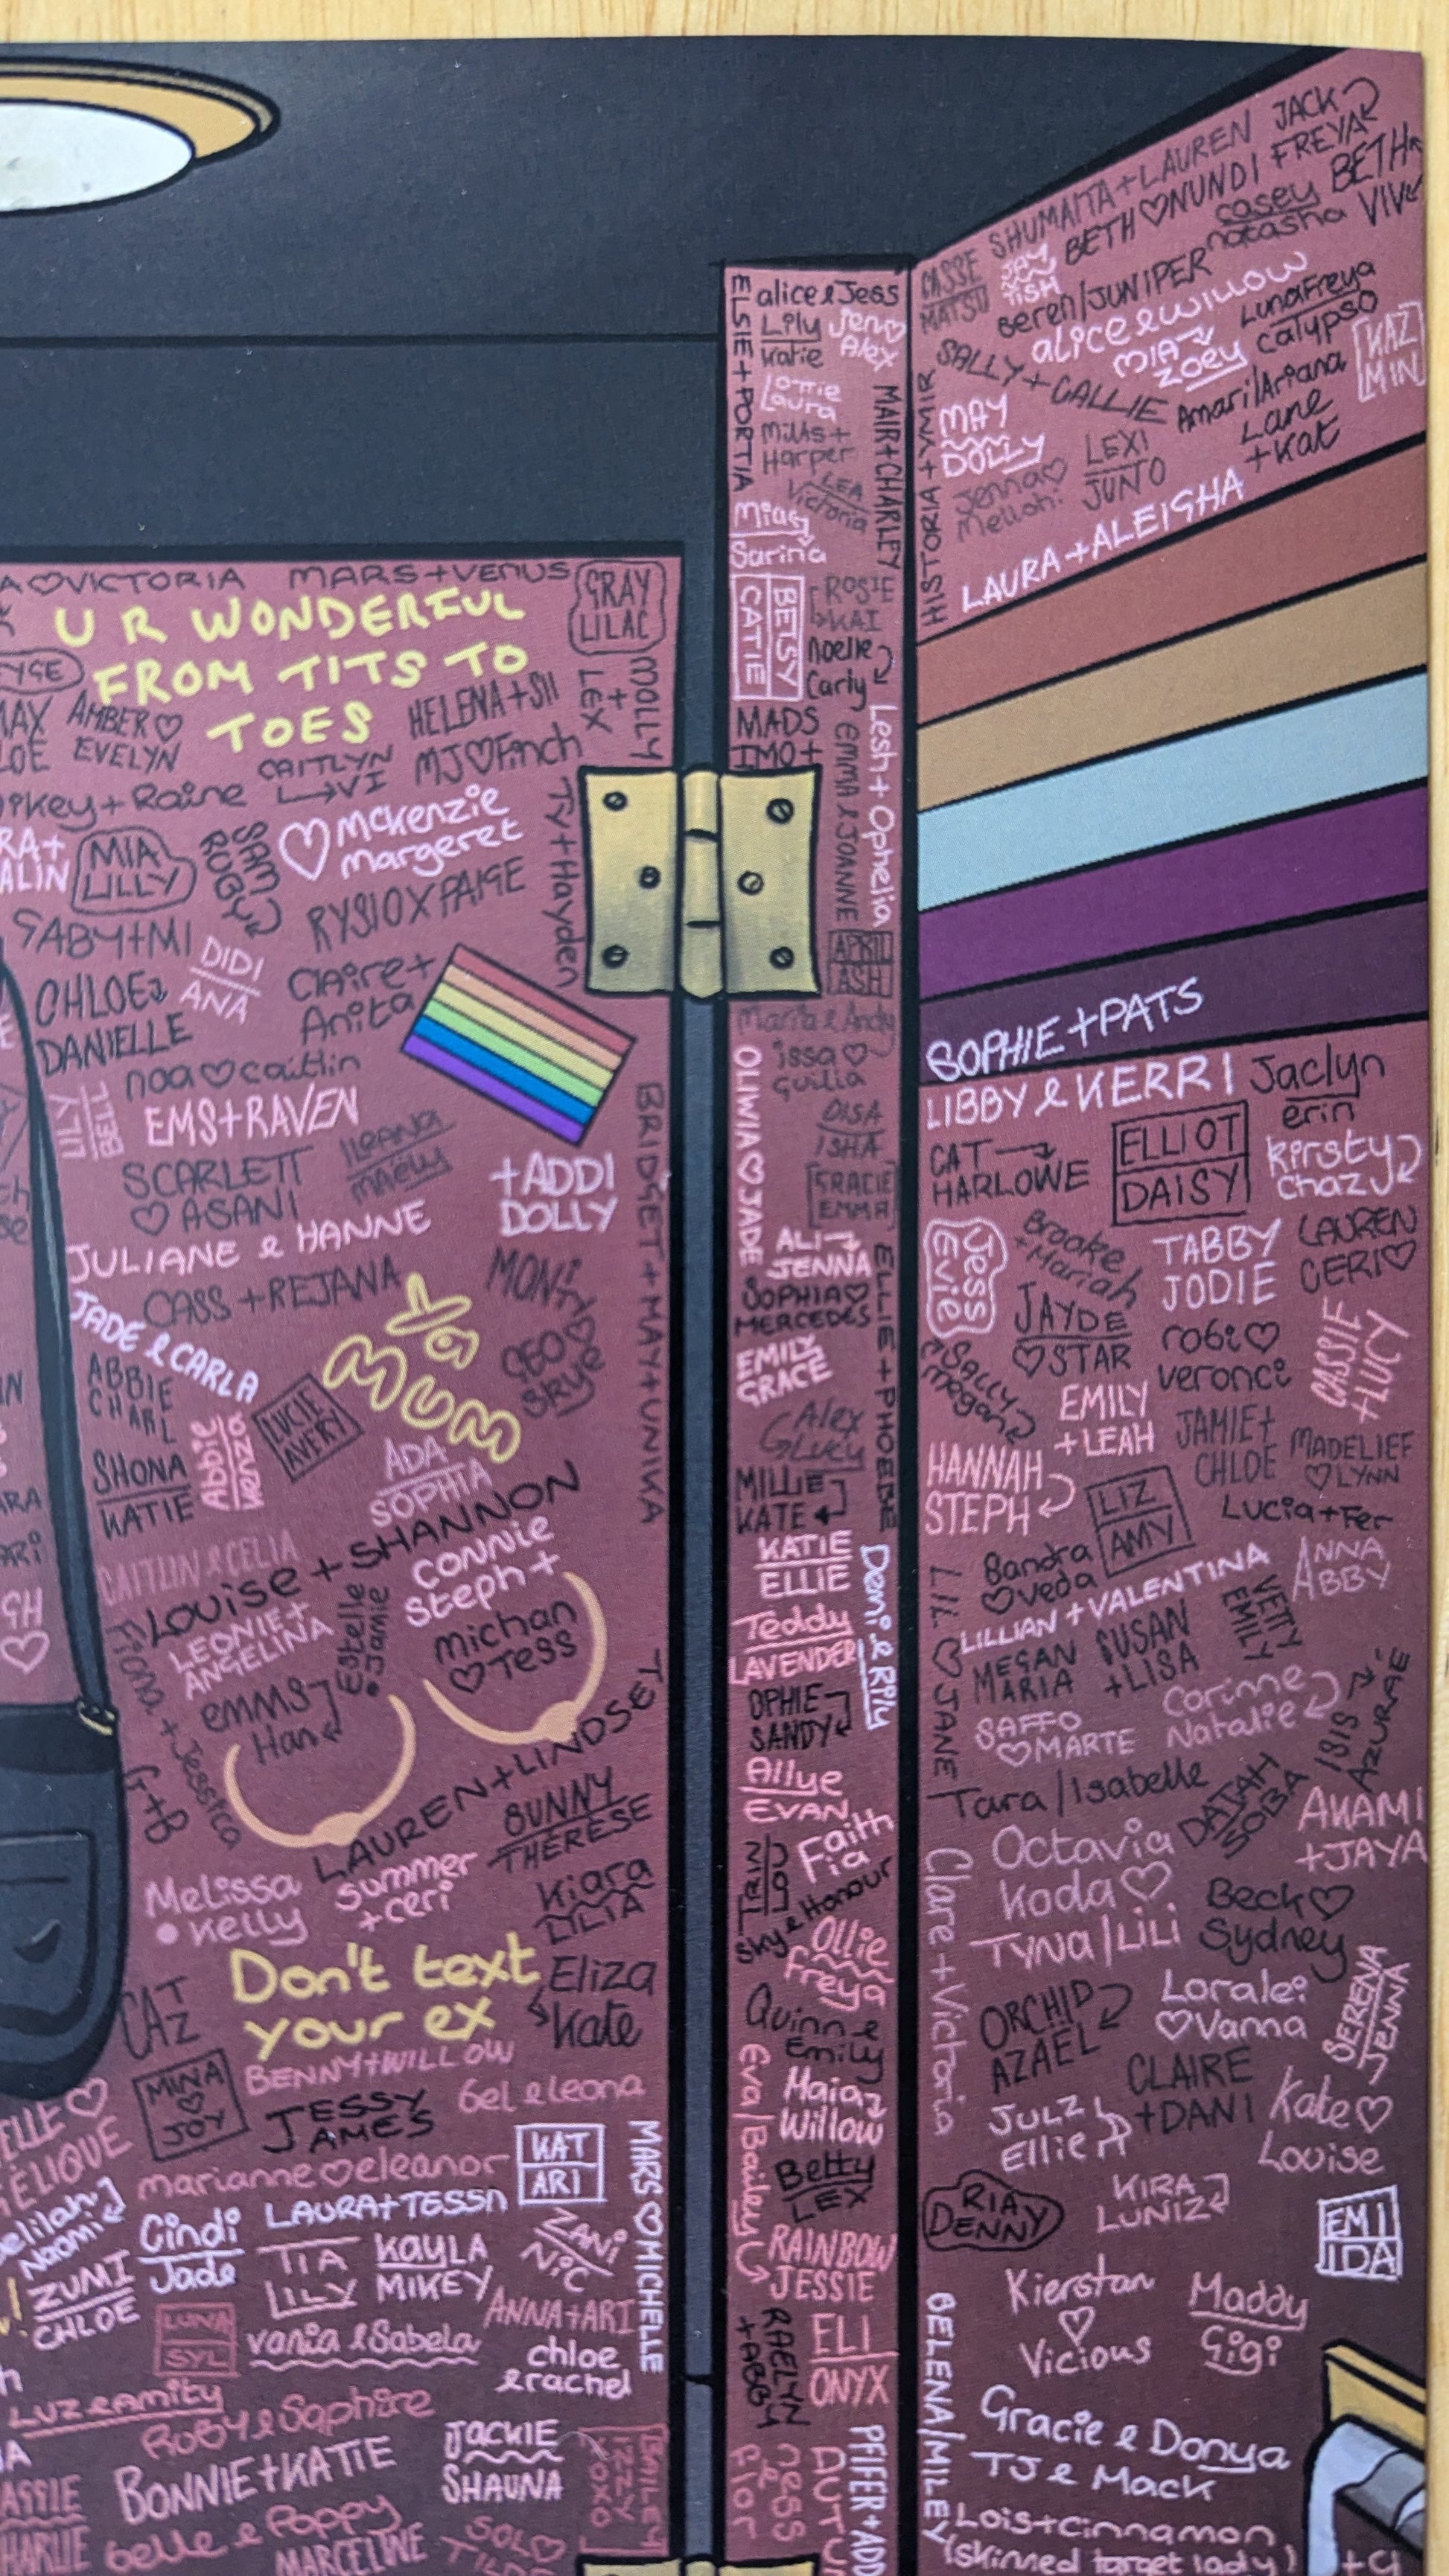 A♡VICTORIA
MARS+VENUS
GRAY
LILAC
U R WONDERFUL
FROM TITS TO
TOES
MAX
AMBER♡
EVELYN
HELENA+SII
LEX
+
MOLLY
CAITLYN
↳VI
MJ♡Finch
ikey+Raine
♡McKenzie
margeret
Ty+Hayden
RA+
ALIN
MIA
LILLY
SAM
RUBY
RYSIOXPAIGE
GABY+MI
DIDI
ANA
CHLOE
DANIELLE
Claire+
Anita
noa♡caitlin
LILY
BELL
EMS+RAVEN
SCARLETT
♡ASANI
ILEANA
MAELLY
+ADDI
DOLLY
BRIDGET+MAY+UNIKA
JULIANE & HANNE
CASS+REJANA
MONTY
JADE & CARLA
Yer
MUM
GEO♡
SKYE
ABBIE
CHARL
LUCIE
AVERY
SHONA
KATIE
Abbie
kenzo
ADA
SOPHIA
CAITLIN & CELIA
Louise+SHANNON
CONNIE
Steph+
LEONIE+
ANGELINA
Estelle
Jamie
michan
♡Tess
Fiona+Jessica
emms
Han
G+B
LAUREN+LINDSE
BUNNY
THERESE
Melissa
kelly
summer
+ceri
Kiara
LILIA
Don't text
your ex
Eliza
Kate
CAT
Z
MINA
♡
JOY
BENNY+WILLOW
JESSY
JAMES
Gel & leona
ELLE♡
ELIQUE
marianne♡eleanor
KAT
ARI
MARS♡MICHELLE
elilah
Naomi
Cindi
Jade
LAURA+TESSA
ZUMI
CHLOE
TIA
LILY
KAYLA
MIKEY
ZANI
NIC
ANNA+ARI
LUNA
SYL
vania & Sabela
chloe
& rachel
LUZ & Amity
RUBY & Saphire
JACKIE
SHAUNA
BONNIE+KATIE
ASSIE
HARLIE
belle & Poppy
MARCELINE
SOL♡
ELSIE+PORTIA
alice & Jess
Lily
Katie
Jen♡
Alex
Lottie
Laura
Mills+
Harper
MAIR+CHARLEY
LEA
Victoria
Mia
Sarina
BETSY
CATIE
ROSIE
KAI
Noelle
Carly
MADS
IMO+
EMMA & JOANNE
Lesh+Ophelia
APRIL
ASH
Marta & Andy
OLIWIA♡JADE
issa♡
guilia
DISA
ISHA
GRACIE
EMMA
ALI
JENNA
SOPHIA♡
MERCEDES
ELLIE+PHOEBE
EMILY
GRACE
Alex
Lucy
MILLIE
KATE
KATIE
ELLIE
Deni & Rily
Teddy
LAVENDER
OPHIE
SANDY
Allye
EVAN
Faith
Fia
Sky & Honour
Ollie
Freya
Quinn &
Emily
Eva/Bailey
Maia
Willow
Betty
LEX
RAINBOW
JESSIE
RAELYN
+ABBY
ELI
ONYX
PFIFER+ADD
CASSE
MATSU
SHUMAITA+LAUREN
JACK
FREYA
JAY
TISH
BETH♡NUNDI
casey
natasha
BETH
VIV
Beren/JUNIPER
alice & willow
LunaFreya
calypso
MIA
ZOEY
KAZ
MIN
SALLY+CALLIE
Amari/Ariana
HISTORIA+YMIR
MAY
DOLLY
LEXI
JUNO
Lane
+Kat
Jenna♡
Melloh
LAURA+ALEIGHA
SOPHIE+PATS
LIBBY & KERRI
Jaclyn
erin
CAT
HARLOWE
ELLIOT
DAISY
kirsty
chazy
Jess
Evie
Brooke
+Mariah
TABBY
JODIE
LAUREN
CERI♡
JAYDE
♡STAR
robi♡
veronci
CASSIE
+LUCY
SALLY
Megan
EMILY
+LEAH
JAMIE+
CHLOE
MADELIEF
♡LYNN
HANNAH
STEPH
LIZ
AMY
Lucia+Fer
Sandra
♡veda
ANNA
ABBY
LIL♡JANE
LILLIAN+VALENTINA
VETTY
EMILY
MEGAN
MARIA
SUSAN
+LISA
SAFFO
♡MARTE
Corinne
Natalie
ISIS
AZURAE
Tara/Isabelle
DATAH
SOBA
AKAMI
+JAYA
Clare+Victoria
Octavia
Koda♡
Beck♡
Sydney
Tyna/Lili
ORCHID
AZAEL
Loralei
♡Vanna
SERENA
JENNA
JULZ
Ellie
CLAIRE
+DANI
Kate♡
Louise
RIA
DENNY
KIRA
LUNIZ
EMI
IDA
Kierstan
♡
Vicious
Maddy
Gigi
BELENA/MILEY
Gracie & Donya
TJ & Mack
Lois+cinnamon
(skinned target lady)